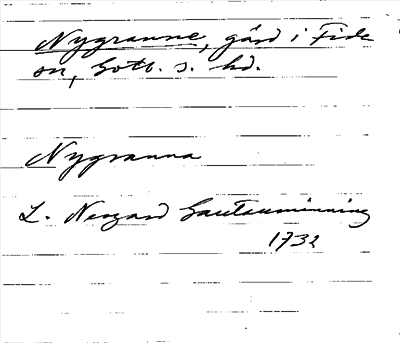 Nygranne, gård i Fide
sn, Gotl. s. hd.
Nygranna
L. Neogard Gautauminning
1732